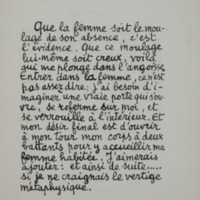 Que la femme soit le mou-
lage de son absence, c'est
l'évidence. Que ce moulage
lui-même soit creux, voilà
qui me plonge dans l'angoisse.
Entrer dans la femme, ce n'est
pas assez dire: j'ai besoin d'i-
maginer une vraie porte qui s'ou-
vre, se referme sur moi, et
se verrouille à l'intérieur. Et
mon désir final est d'ouvrir
à mon tour mon corps à deux
battants pour y accueillir ma
femme habitée. J'aimerais
ajouter: et ainsi de suite.....
si je ne craignais le vertige
métaphysique.